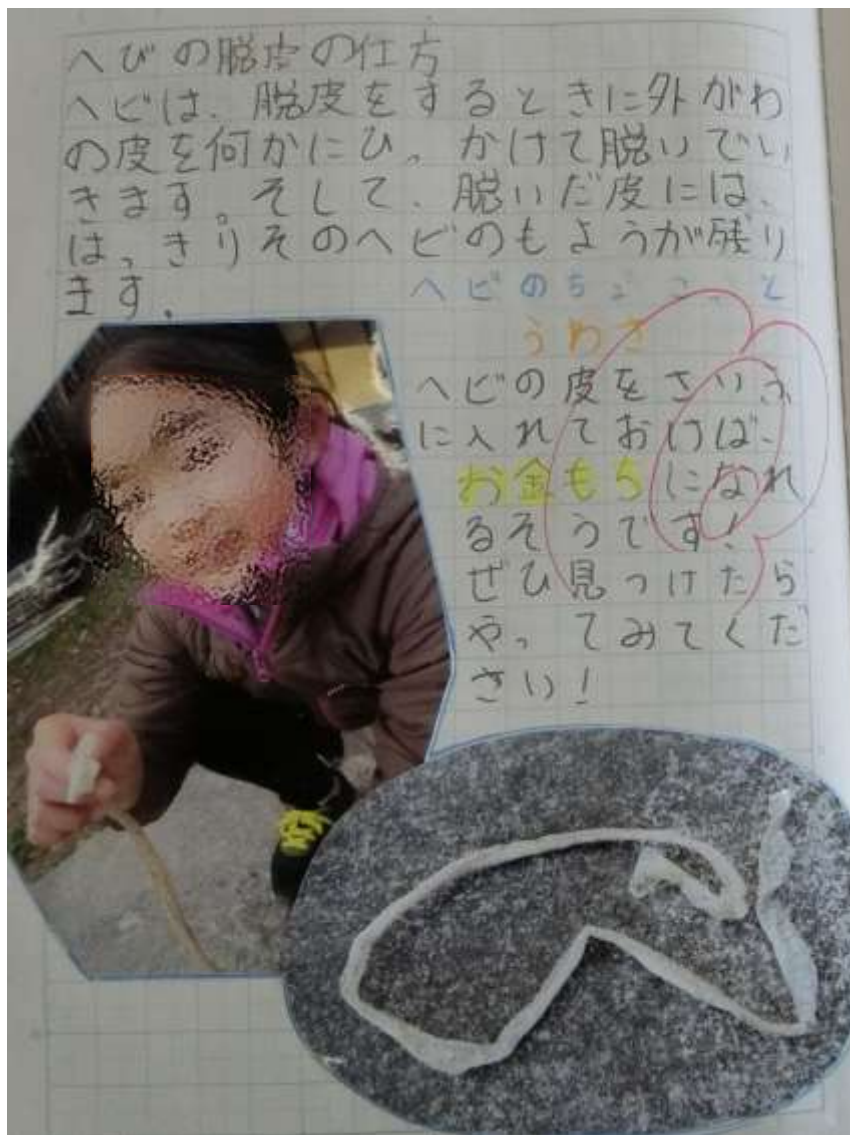 へびの脱皮の仕方
ヘビは、脱皮をするときに外がわ
の皮を何かにひっかけて脱いでい
きます。そして、脱いだ皮には、
はっきりそのヘビのもようが残り
ます。
ヘビのちょこっと
うわさ
ヘビの皮をさいふ
に入れておけば、
お金もちになれ
るそうです!
ぜひ見つけたら
やってみてくだ
さい!